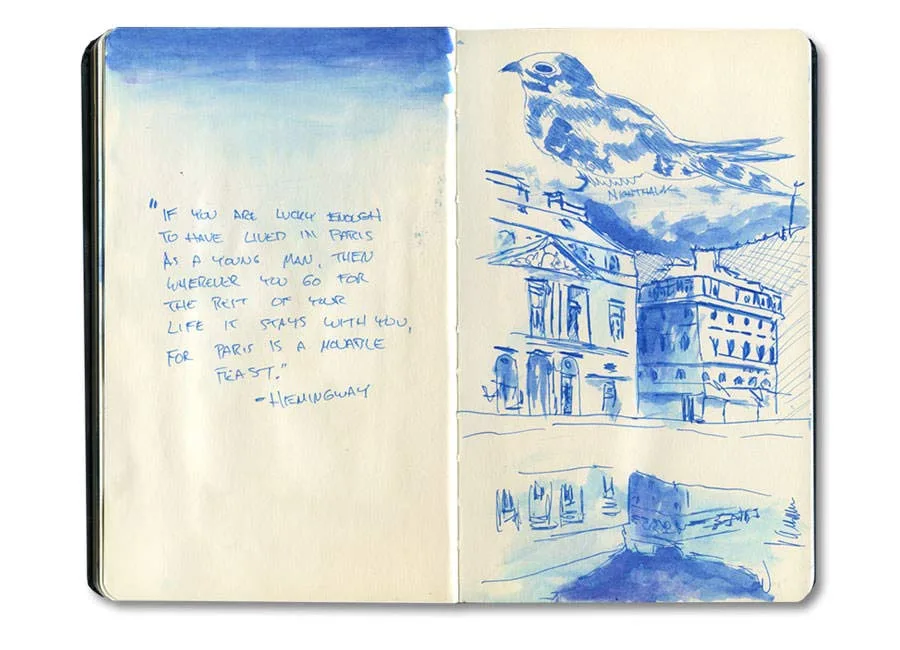 "IF YOU ARE LUCKY ENOUGH
TO HAVE LIVED IN PARIS
AS A YOUNG MAN, THEN
WHEREVER YOU GO FOR
THE REST OF YOUR
LIFE IT STAYS WITH YOU,
FOR PARIS IS A MOVABLE
FEAST."
-HEMINGWAY
NIGHTHAWK